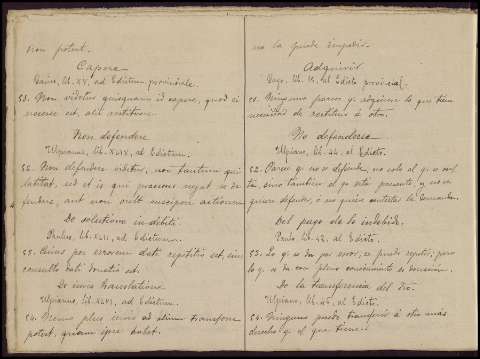 non potest.
Capere
Gaius, lib. XV, ad Edictum provinciale.
51. Non videtur quisquam id capere, quod ei
necesse est, alii restituere.
Non defendere
Ulpianus, lib. XLIV, ad Edictum.
52. Non defendere videtur, non tantum qui
latitat, sed et is qui praesens negat se de
fendere, aut non vult suscipere actionem
De solutione indebiti
Paulus, lib. XLII, ad Edictum.
53. Cujus per errorem dati repetitio est, ejus
consulto dati donatio est.
De juris translatione
Ulpianus, lib. XLVI, ad Edictum.
54. Nemo plus juris ad alium transferre
potest, quam ipse habet.
no la puede impedir.
Adquirir
Gayo, lib. 15, al Edicto provincial.
51. Ninguno parece q. adquiere lo que tiene
necesidad de restituir á otro.
No defenderse
Ulpiano, lib. 44, al Edicto.
52. Parece q. no se defiende, no solo el q. se ocul
ta, sino tambien el q. está presente, y no se
quiere defender, ó no quiere contestar la demanda.
Del pago de lo indebido.
Paulo lib. 42, al Edicto.
53. Lo q. se da por error, se puede repetir; pero
lo q. se da con pleno conocimiento es donacion.
De la transferencia del dro.
Ulpiano, lib. 46, al Edicto.
54. Ninguno puede transferir á otro más
derecho q. el que tiene.